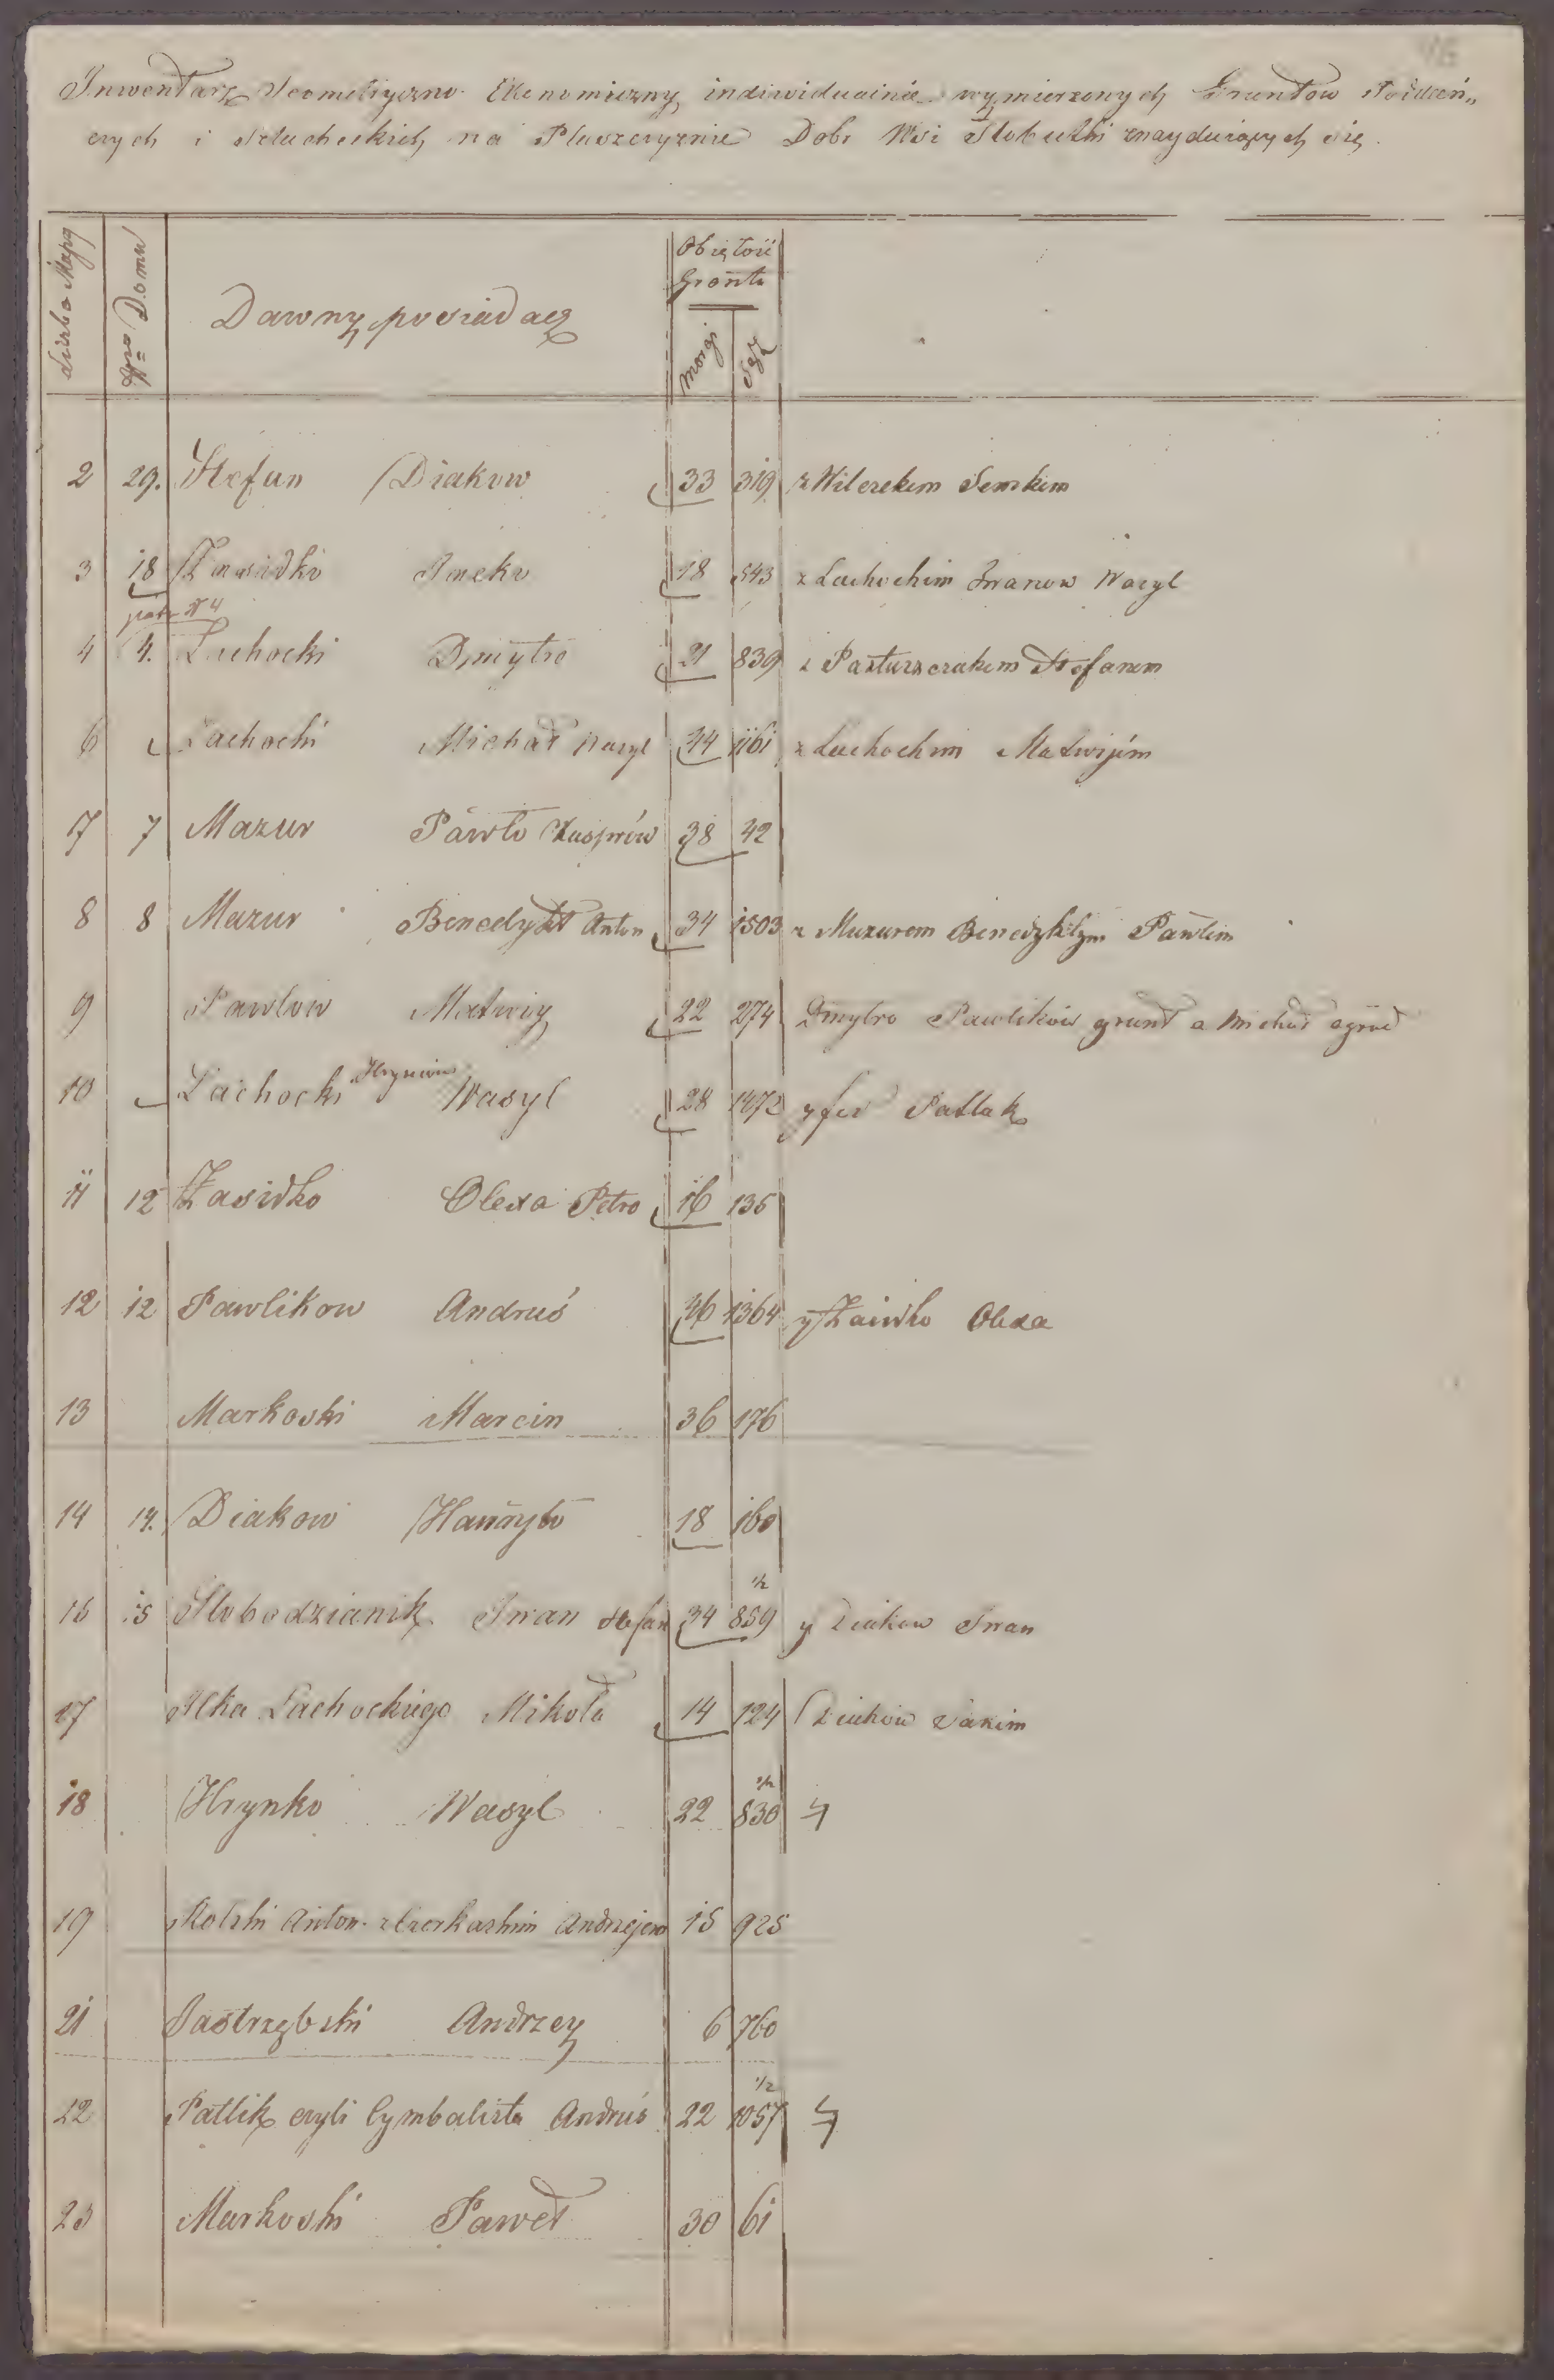 Inwentarz Geometryczno Ekonomiczny indiwidualnie wymierzonych Gruntow
czych i Szlacheckich na Pluszczyznie Dobr Wsi Slobutki znayduiących się.
liczba Mapy
Nro Domu
Dawny posiadacz
Obiętość
Grontu
Morgi
Sąż
2 29. Stefan Diakow 33 319 z Wilczekem Semkem
3 18 Zasidko Jacko 18 543 z Lachockim Iwanow Wasyl
patz N 4
4 4. Lachocki Dmytro 21 839 z Pasturszczakem Stefanem
6 Lachocki Michał Wasyl 44 1161 z Lachockim Matwijem
7 7 Mazur Pawło Kasprów 38 42
8 8 Mazur Benedykt Anton 34 1503 z Mazurem Benedyktym Pawlem
9 Pawlow Matwiy 22 274 Dmytro Pawlikow grunt a Michał ogrod
10 Lachocki Hrynciow Wasyl 28 1472 y fed Patlak
11 12 Zasidko Olexa Petro 16 135
12 12 Pawlikow Andruś 46 1364 y Zasidko Olexa
13 Markoski Marcin 36 176
14 14. Diakow Hawryło 18 160
15 15 Slobodzianik Iwan Stefan 34 859 1/2 y Diakow Iwan
17 Ilka Lachockiego Mikoła 14 124 Diakow Jakim
18 Hrynko Wasyl 22 830 1/2
19 Rolski Anton z Czerkaskim Andrzejem 15 925
21 Jastrzębski Andrzey 6 760
22 Patlik czyli Cymbalista Andruś 22 1057 1/2
23 Markoski Paweł 30 61